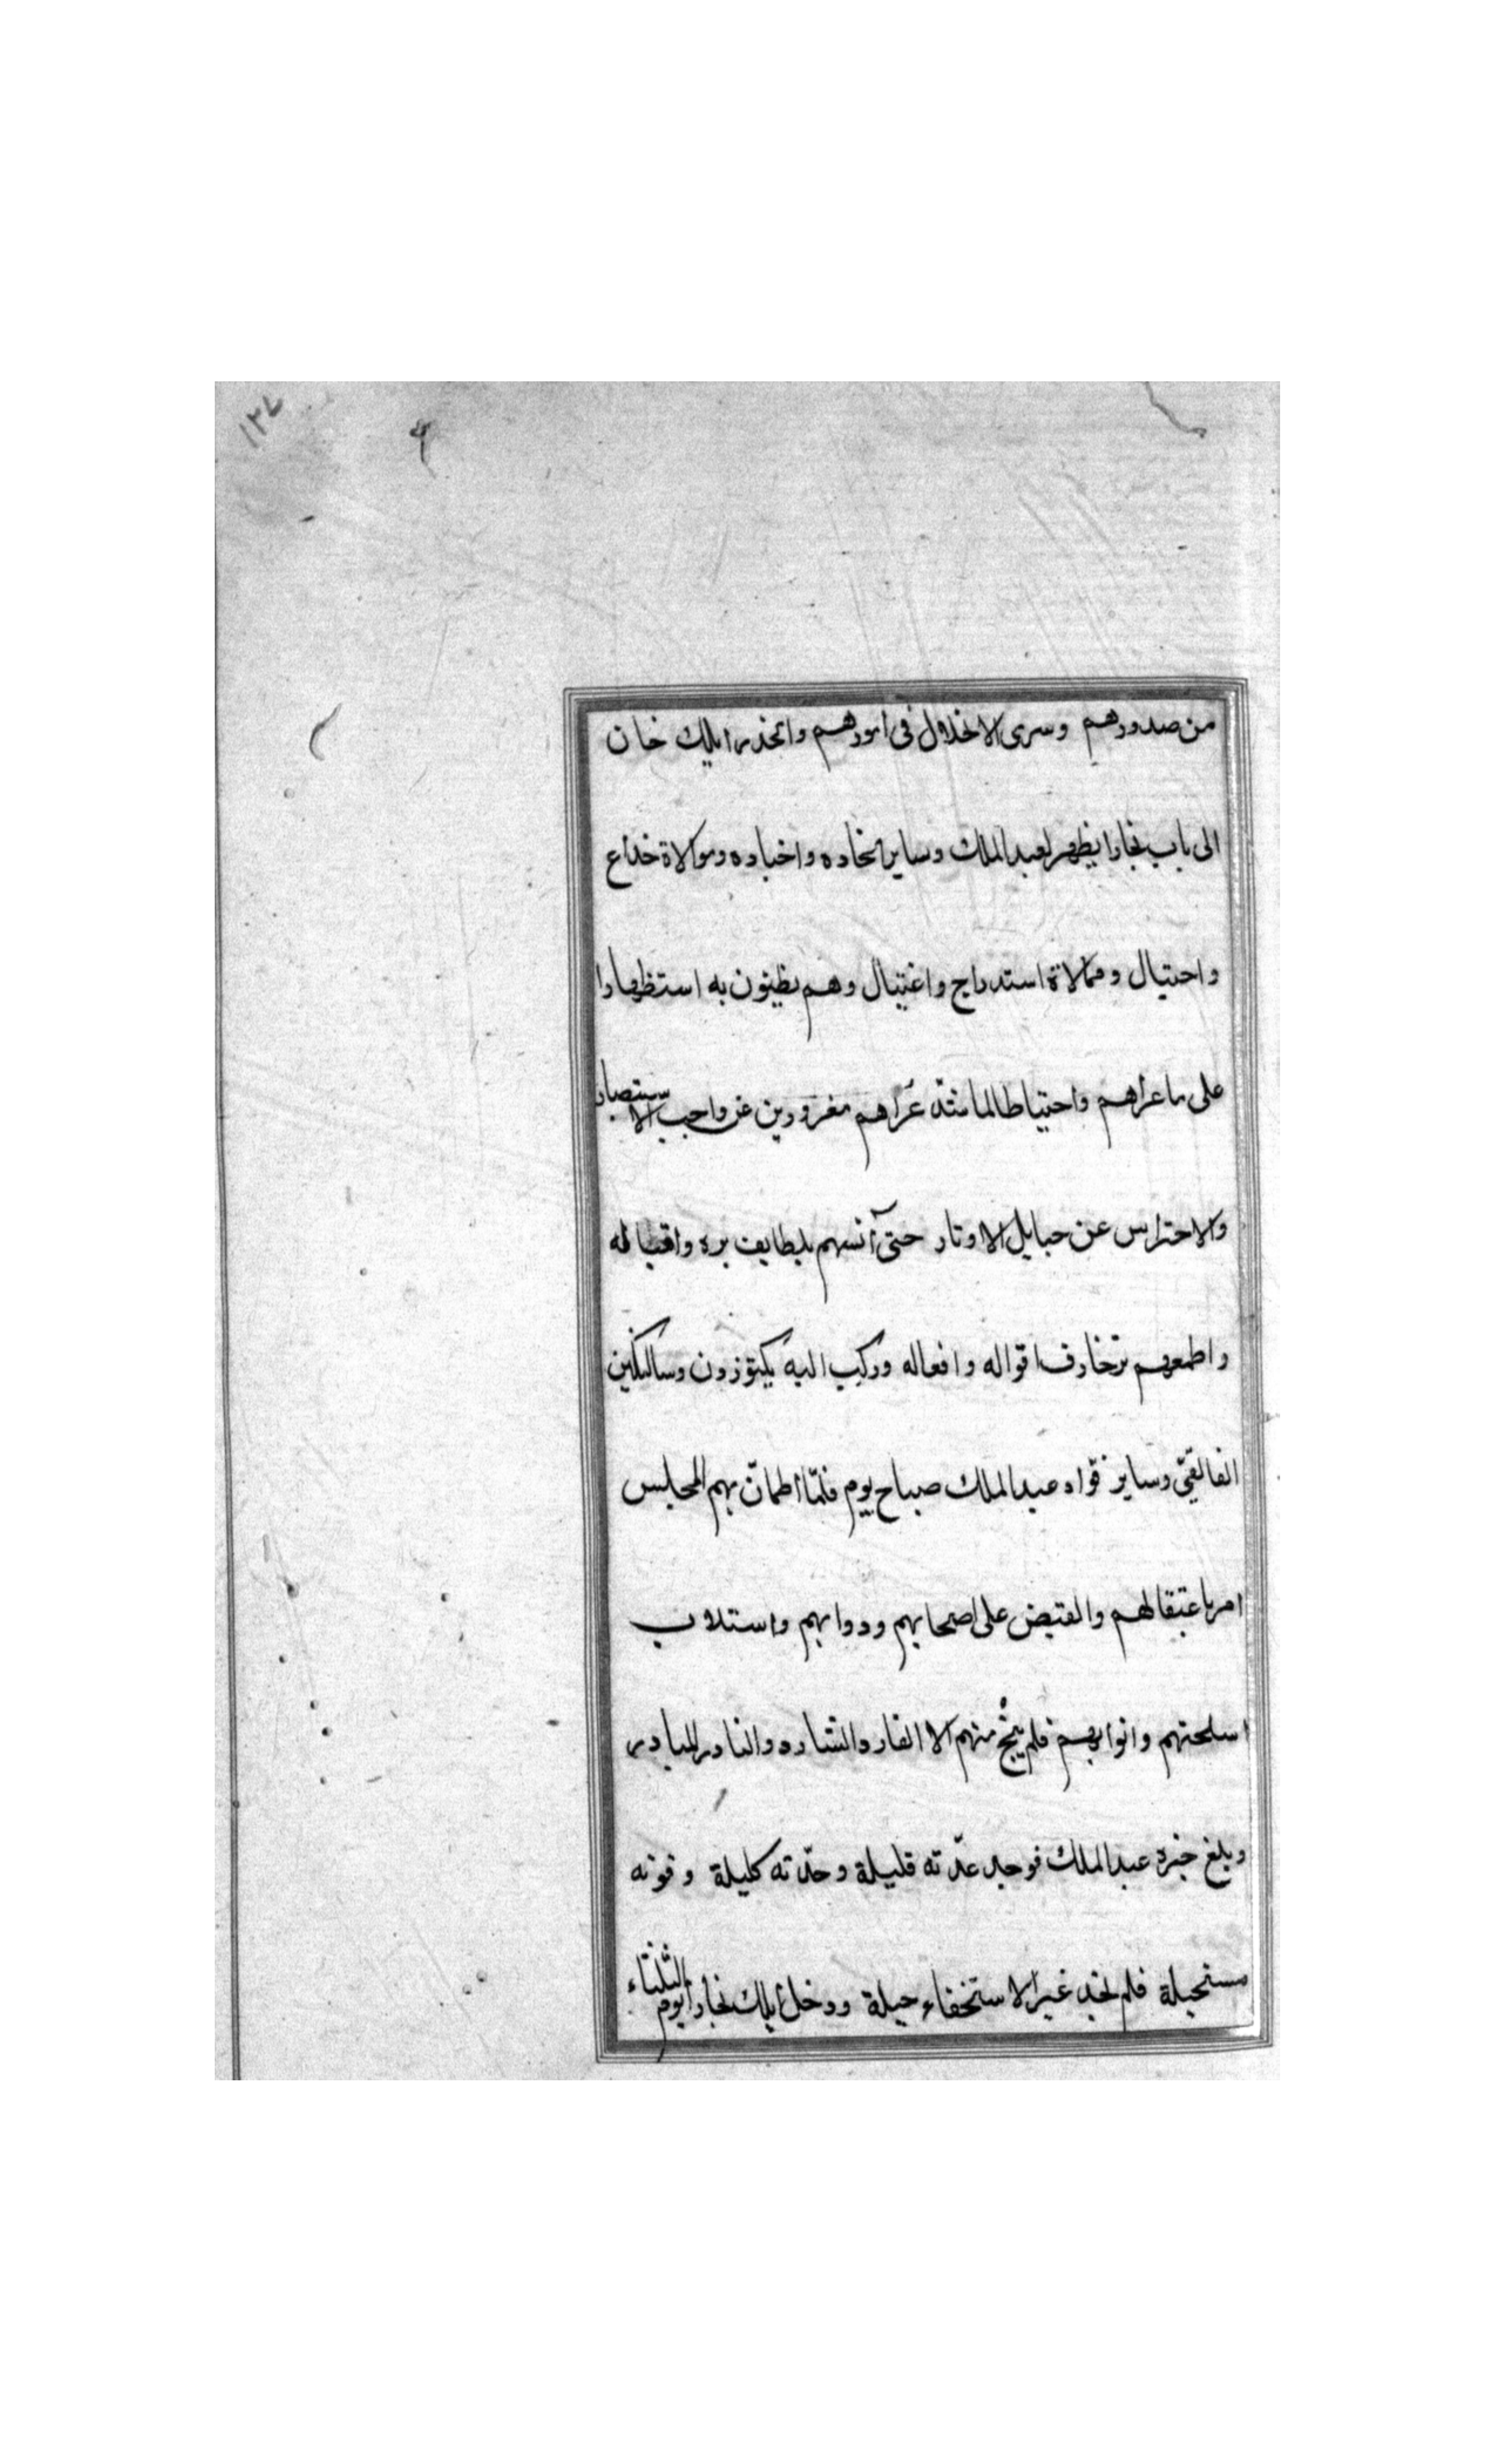 ١٣٤
من صدورهم وسرى الانخذال فى امورهم وانحدر ايلك خان
الى باب بخارا يظهر لعبد الملك وساير انجاده واخباده وموالاة خداع
واحتيال وممالاة استدراج واغتيال وهم يظنون به استظهارا
على ما عراهم واحتياطا لما شدّ عراهم مغرورين عن واجب الاستبصار
والاحتراس عن حبايل الاوتار حتى آنسهم بلطايف بره واقباله
واطمعهم بزخارف اقواله وافعاله وركب اليه بكتوزون وسالتكين
الفائقيّ وساير قوّاد عبد الملك صباح يوم فلمّا اطمانّ بهم المجلس
امر باعتقالهم والقبض على اصحابهم ودوابهم واستلاب
اسلحتهم واثوابهم فلم ينجُ منهم الا الفار والشارد والنادر المبادر
وبلغ خبره عبد الملك فوجد عدّته قليلة وحدّته كليلة وقوته
مستحيلة فلم يجد غير الاستخفاء حيلة ودخل ايلك بخارا يوم الثلثاء